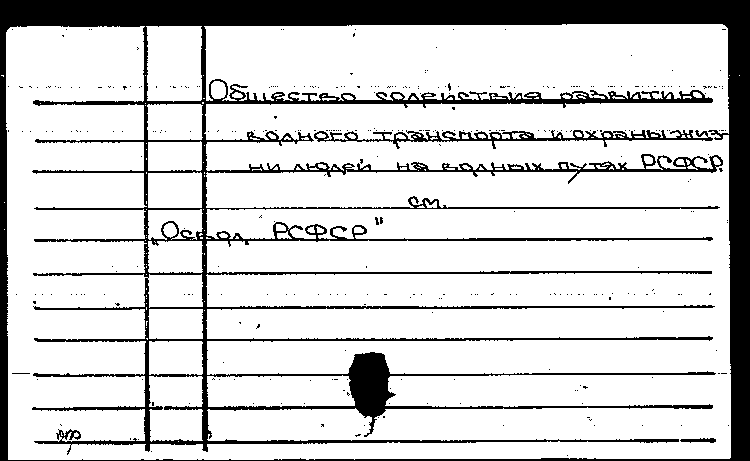 Общество содействия развитию
водного транспорта и охраны жиз-
ни людей на водных путях РСФСР
см.
„Освод РСФСР"